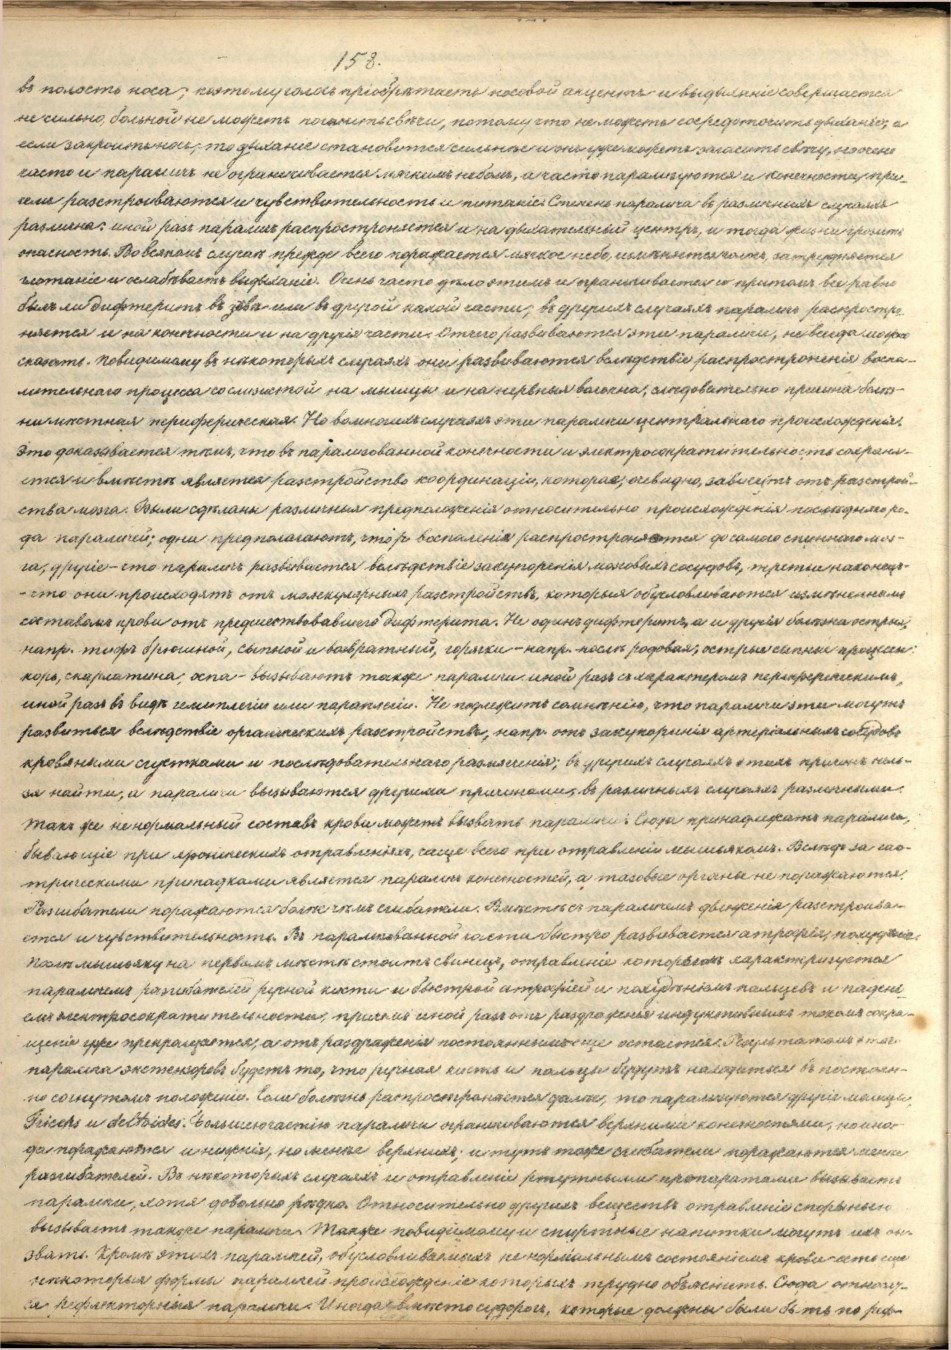 158.
въ полость носа; поэтому голосъ пріобрѣтаетъ носовой акцентъ и выдыханіе совершается
не сильно, больной не можетъ погасить свѣчи, потому что не можетъ сосредоточить дыханія; а
если закроить носъ, то дыханіе становится сильнѣе и онъ уже можетъ загасить свѣчу,
часто и параличъ не ограничивается мягкимъ небомъ, а часто парализуются и конечности, при-
чемъ разстроиваются и чувствительность и питаніе. Степень паралича въ различныхъ случаяхъ
различна: иной разъ параличъ распространяется и на дыхательный центръ, и тогда жизни грозитъ
опасность. Во всякомъ случаѣ прежде всего поражается мягкое небо, измѣняется голосъ, затрудняется
глотаніе и ослабѣваетъ выдыханіе. Очень часто дѣло этимъ и ограничивается и притомъ все равно
былъ ли дифтеритъ въ зѣвѣ или въ другой какой части, въ другихъ случаяхъ параличъ распростра-
няется и на конечности и на другія части. Отчего развиваются эти параличи, не всегда можно
сказать. Повидимому въ нѣкоторыхъ случаяхъ они развиваются вслѣдствіе распространенія воспа-
лительнаго процесса со слизистой на мышцы и на нервныя волокна, слѣдовательно причина болѣз-
ни мѣстная периферическая. Но во многихъ случаяхъ эти параличи центральнаго происхожденія.
Это доказывается тѣмъ, что въ парализованной конечности и электросократительность сохраня-
ется и вмѣстѣ является разстройство координаціи, которое, очевидно, зависитъ отъ разстрой-
ства мозга. Были сдѣланы различныя предположенія относительно происхожденія послѣдняго ро-
да параличей; одни предполагаютъ, что воспаленія распространяются до самого спинного моз-
га, другіе - что параличъ развивается вслѣдствіе закупоренія мозговыхъ сосудовъ, третьи наконецъ -
- что они происходятъ отъ молекулярныхъ разстройствъ, которыя обусловливаются измѣненнымъ
составомъ крови отъ предшествовавшего дифтерита. Не одинъ дифтеритъ, а и другія болѣзни острыя,
напр. тифъ брюшной, сыпной и возвратный, горячки - напр. послѣродовая, острые сыпные процессы:
корь, скарлатина, оспа - вызываютъ также параличи иной разъ съ характеромъ периферическимъ,
иной разъ въ видѣ гемиплегіи или параплегіи. Не подлежитъ сомнѣнію, что параличи эти могутъ
развиться вслѣдствіе органическихъ разстройствъ, напр. отъ закупоренія артеріальныхъ сосудовъ
кровяными сгустками и послѣдовательнаго размягченія; въ другихъ случаяхъ этихъ причинъ нель-
зя найти, а параличи вызываются другими причинами, въ различныхъ случаяхъ различными.
Такъ же ненормальный составъ крови можетъ вызвать параличи. Сюда принадлежатъ параличи,
бывающіе при хроническихъ отравленіяхъ, чаще всего при отравленіи мышьякомъ. Вслѣдъ за гас-
трическими припадками является параличъ конечностей, а тазовые органы не поражаются.
Разгибатели поражаются болѣе чѣмъ сгибатели. Вмѣстѣ съ параличемъ движенія разстроива-
ется и чувствительность. Въ парализованной части быстро развивается атрофія, похуданіе.
Послѣ мышьяку на первомъ мѣстѣ стоитъ свинецъ, отравленіе которымъ характеризуется
параличемъ разгибателей ручной кисти и быстрой атрофіей и похуданіемъ пальцевъ и паденi-
емъ электросократительности, причемъ иной разъ отъ раздраженія индуктивнымъ токомъ сокра-
щеніе уже прекращается, а отъ раздраженія постояннымъ еще остается. Результатомъ этого
паралича экстензоровъ будетъ то, что ручная кисть и пальцы будутъ находиться въ постоян-
но согнутомъ положеніи. Если болѣзнь распространяется далѣе, то парализуются другіе мышцы
Triceps и deltoides. Большею частію параличи ограничиваются верхними конечностями, но ино-
гда поражаются и нижнія, но менѣе верхнихъ, и тутъ тоже сгибатели поражаются менѣе
разгибателей. Въ нѣкоторыхъ случаяхъ и отравленіе ртутными препаратами вызываетъ
параличи, хотя довольно рѣдко. Относительно другихъ веществъ отравленіе спорыньею
вызываетъ также параличи. Также повидимому и спиртные напитки могутъ ихъ вы-
звать. Кромѣ этихъ параличей, обусловливаемыхъ ненормальнымъ состояніемъ крови есть еще
нѣкоторыя формы параличей происхожденіе которыхъ трудно объяснить. Сюда относят-
ся рефлекторныя параличи. Иногда вмѣсто судорогъ, которые должны были быть по реф-